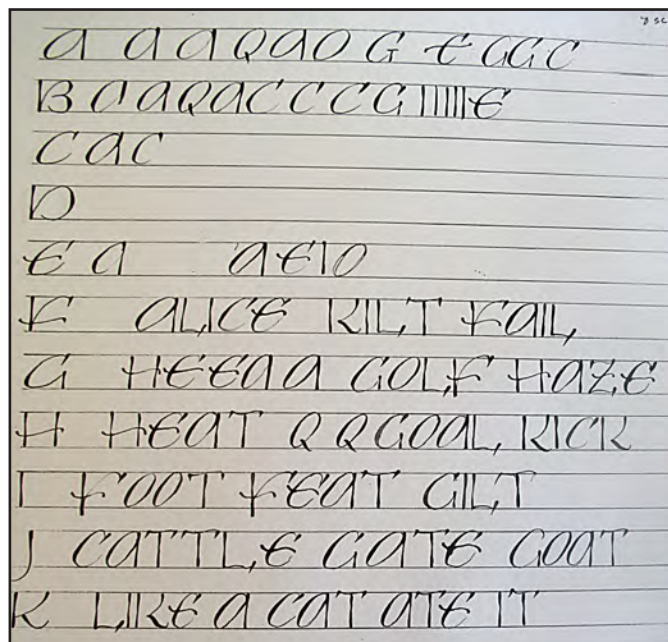 A A A Q A O G E G G C
B C A Q A C C C G I I I I I I E
C A C
D
E A A E I O
F ALICE KILT FAIL
G HEEAA GOLF HAZE
H HEAT Q Q GOAL KICK
I FOOT FEAT GILT
J CATTLE GATE GOAT
K LIKE A CAT ATE IT